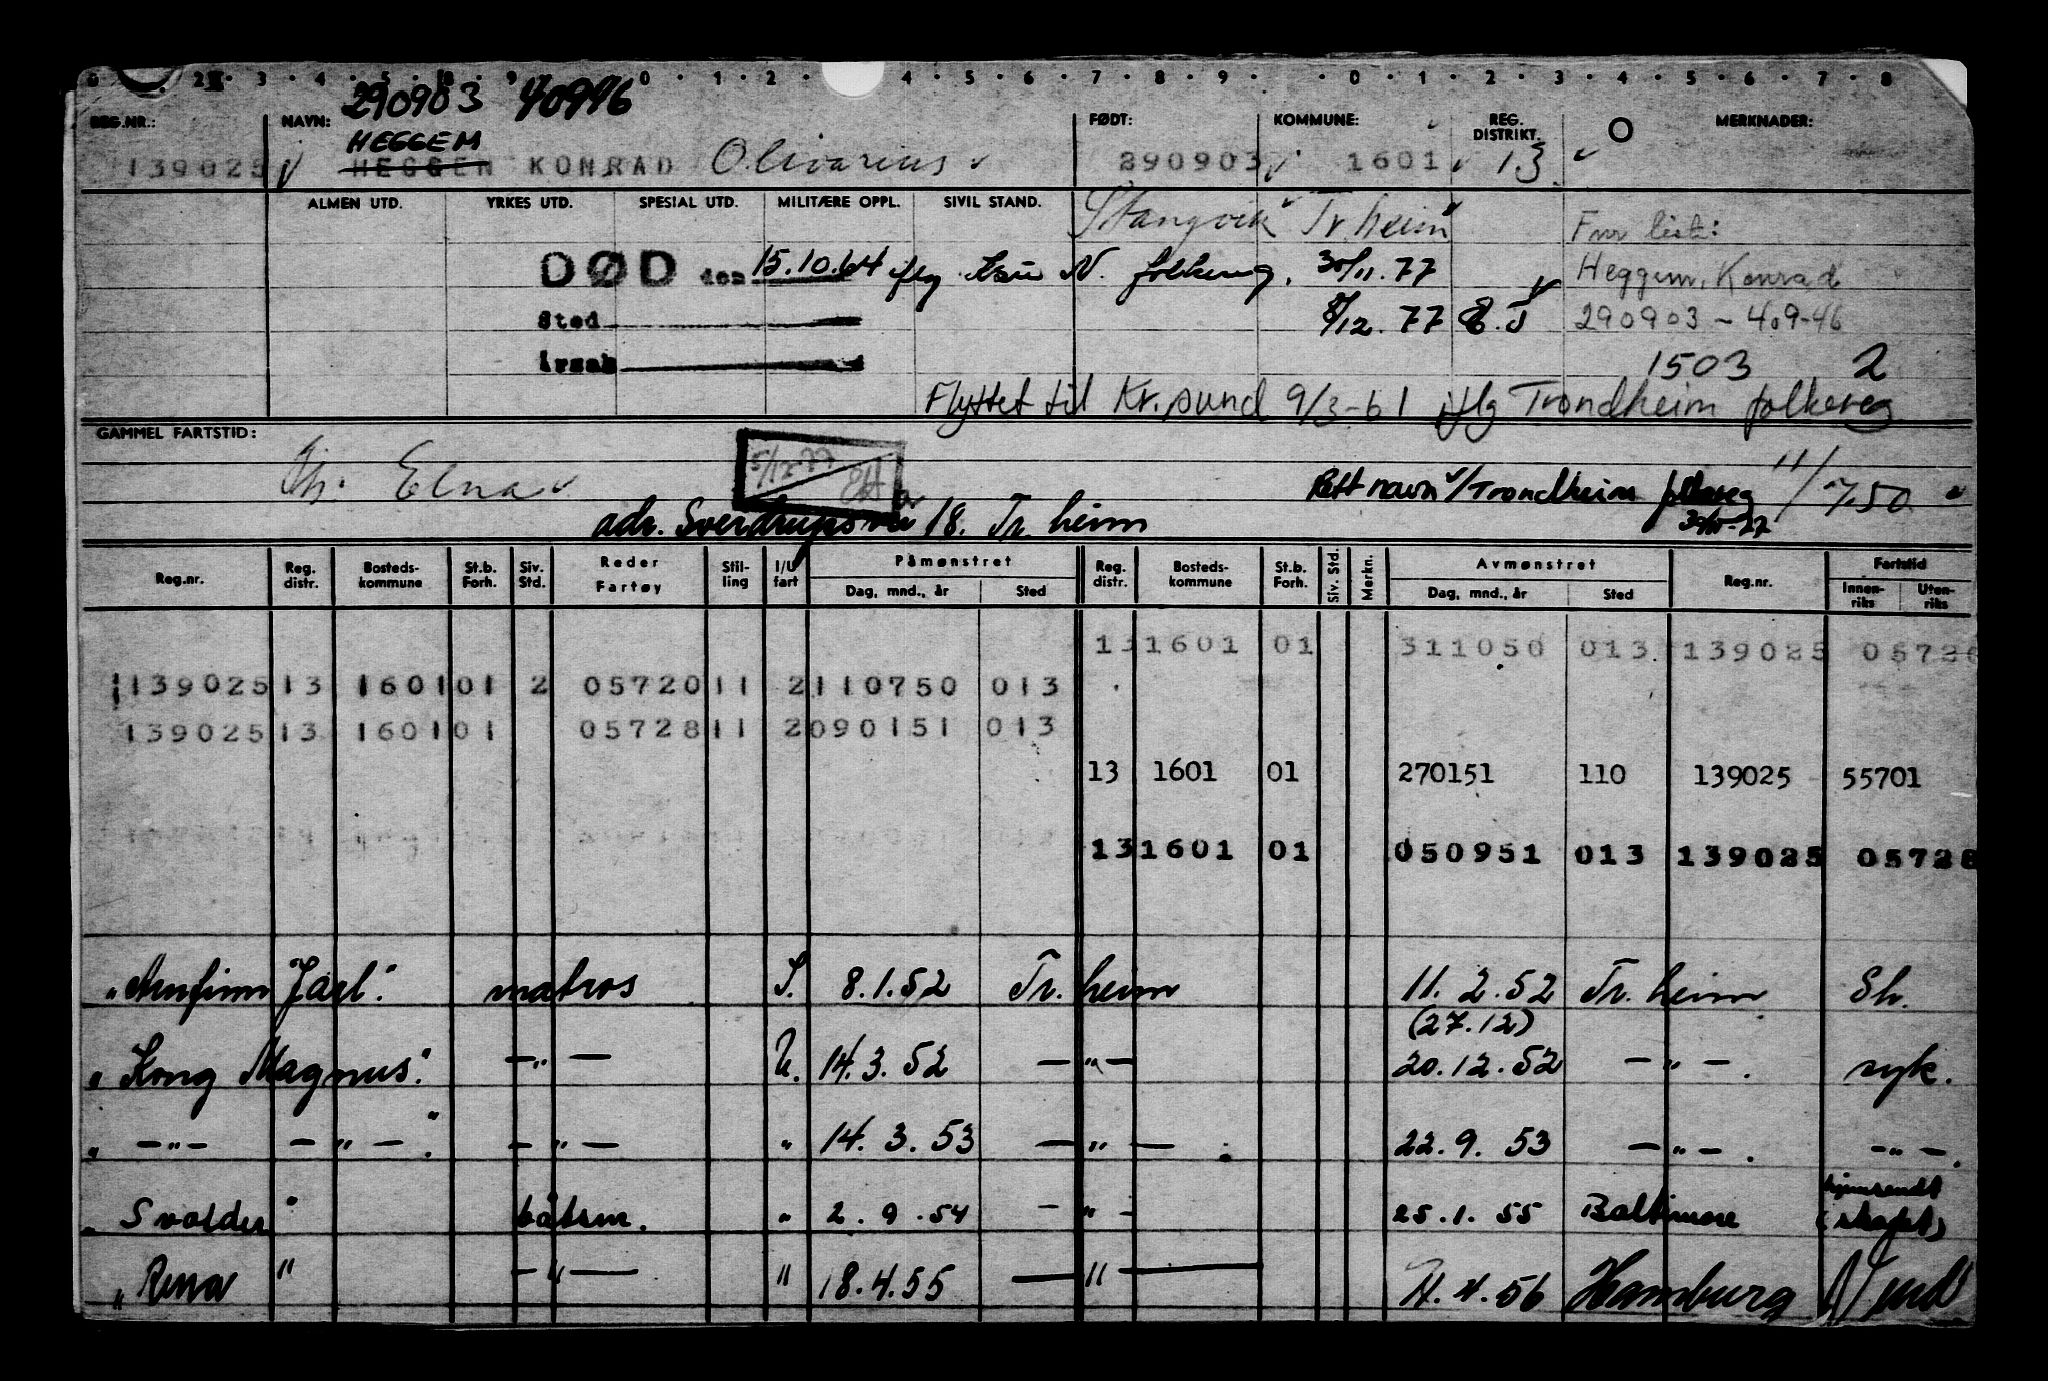 290903 40946
REG.NR.: NAVN: FØDT: KOMMUNE: REG. DISTRIKT. MERKNADER:
HEGGEM
139025 HEGGEN KONRAD Olivarius 290903 1601 13
ALMEN UTD. YRKES UTD. SPESIAL UTD. MILITÆRE OPPL. SIVIL STAND. Stangvik Tr.heim Fnr list:
DØD den 15.10.64 ifg N. folkereg. 30/11.77 Heggem, Konrad
Sted 8/12.77 290903 - 409-46
Årsak 1503 2
Flyttet til Kr.sund 9/3-61 iflg Trondheim folkereg
GAMMEL FARTSTID:
5/12-77
Elna Rett navn Trondheim folkereg 11/7.50
30/11-77
adr. 18. Tr.heim
Reg.nr. Reg. distr. Bosteds-kommune St.b. Forh. Siv. Std. Reder Fartøy Stilling I/U fart Påmønstret Dag, mnd., år Sted Reg. distr. Bosteds-kommune St.b. Forh. Siv. Std. Merkn. Avmønstret Dag, mnd., år Sted Reg.nr. Fartstid Innen-riks Uten-riks
13 1601 01 311050 013 139025 05720
139025 13 1601 01 2 05720 11 2 110750 013
139025 13 1601 01 05728 11 2 090151 013
13 1601 01 270151 110 139025 55701
13 1601 01 050951 013 139025 05728
"Arnfinn Jarl". matros I. 8.1.52 Tr.heim 11.2.52 Tr.heim Sh.
(27.12)
"Kong Magnus". -"- U. 14.3.52 -"- 20.12.52 -"-. syk.
" -"- -"- ". -"- " 14.3.53 -"-. 22.9.53 -"-. -"-.
hjemsendt
"Svolder" båtsm. " 2.9.54 -"- 25.1.55 Baltimore (skadet)
"Rena" -"- " 18.4.55 -"- 4.56 Hamburg